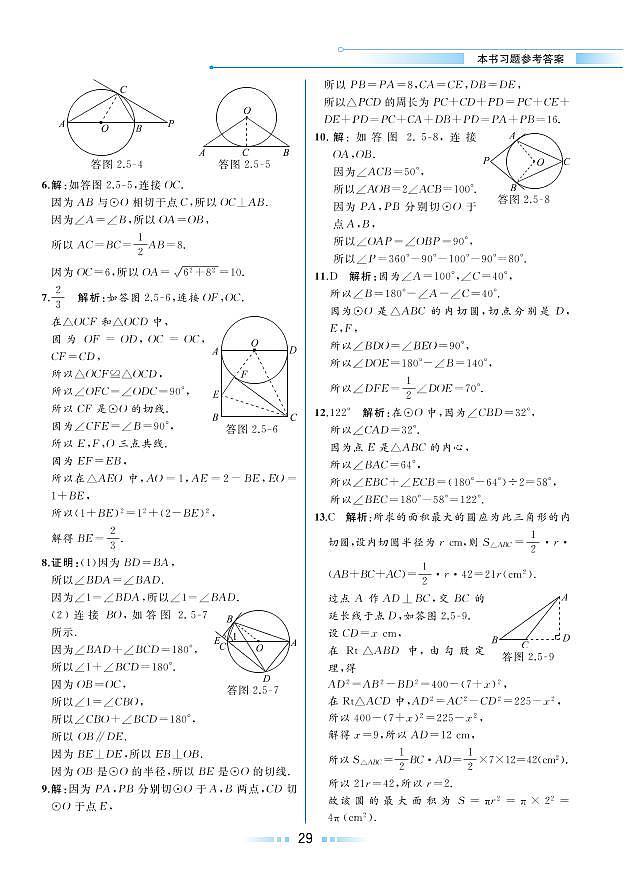 本书习题参考答案
A
O
B
P
C
答图 2.5-4
O
A
C
B
答图 2.5-5
6.解:如答图2.5-5,连接OC.
因为AB与⊙O相切于点C,所以OC⊥AB.
因为∠A=∠B,所以OA=OB,
所以AC=BC=1/2AB=8.
因为OC=6,所以OA=√(6²+8²)=10.
7.2/3 解析:如答图2.5-6,连接OF,OC.
在△OCF和△OCD中,
因为OF=OD,OC=OC,
CF=CD,
所以△OCF≌△OCD,
所以∠OFC=∠ODC=90°,
所以CF是⊙O的切线.
因为∠CFE=∠B=90°,
所以E,F,O三点共线.
因为EF=EB,
所以在△AEO中,AO=1,AE=2-BE,EO=
1+BE,
所以(1+BE)²=1²+(2-BE)²,
解得BE=2/3.
A
O
D
F
E
B
C
答图 2.5-6
8.证明:(1)因为BD=BA,
所以∠BDA=∠BAD.
因为∠1=∠BDA,所以∠1=∠BAD.
(2)连接BO,如答图2.5-7
所示.
因为∠BAD+∠BCD=180°,
所以∠1+∠BCD=180°.
因为OB=OC,
所以∠1=∠CBO,
所以∠CBO+∠BCD=180°,
所以OB∥DE.
因为BE⊥DE,所以EB⊥OB.
因为OB是⊙O的半径,所以BE是⊙O的切线.
B
E
C
1
O
A
D
答图 2.5-7
9.解:因为PA,PB分别切⊙O于A,B两点,CD切
⊙O于点E,
所以PB=PA=8,CA=CE,DB=DE,
所以△PCD的周长为PC+CD+PD=PC+CE+
DE+PD=PC+CA+DB+PD=PA+PB=16.
10.解:如答图2.5-8,连接
OA,OB.
因为∠ACB=50°,
所以∠AOB=2∠ACB=100°.
因为PA,PB分别切⊙O于
点A,B,
所以∠OAP=∠OBP=90°,
所以∠P=360°-90°-100°-90°=80°.
A
P
O
C
B
答图 2.5-8
11.D 解析:因为∠A=100°,∠C=40°,
所以∠B=180°-∠A-∠C=40°.
因为⊙O是△ABC的内切圆,切点分别是D,
E,F,
所以∠BDO=∠BEO=90°,
所以∠DOE=180°-∠B=140°,
所以∠DFE=1/2∠DOE=70°.
12.122° 解析:在⊙O中,因为∠CBD=32°,
所以∠CAD=32°.
因为点E是△ABC的内心,
所以∠BAC=64°,
所以∠EBC+∠ECB=(180°-64°)÷2=58°,
所以∠BEC=180°-58°=122°.
13.C 解析:所求的面积最大的圆应为此三角形的内
切圆,设内切圆半径为r cm,则S△ABC=1/2·r·
(AB+BC+AC)=1/2·r·42=21r(cm²).
过点A作AD⊥BC,交BC的
延长线于点D,如答图2.5-9.
设CD=x cm,
在Rt△ABD中,由勾股定
理,得
AD²=AB²-BD²=400-(7+x)²,
在Rt△ACD中,AD²=AC²-CD²=225-x²,
所以400-(7+x)²=225-x²,
解得x=9,所以AD=12 cm,
所以S△ABC=1/2BC·AD=1/2×7×12=42(cm²).
所以21r=42,所以r=2.
故该圆的最大面积为S=πr²=π×2²=
4π(cm²).
A
B
C
D
答图 2.5-9
29